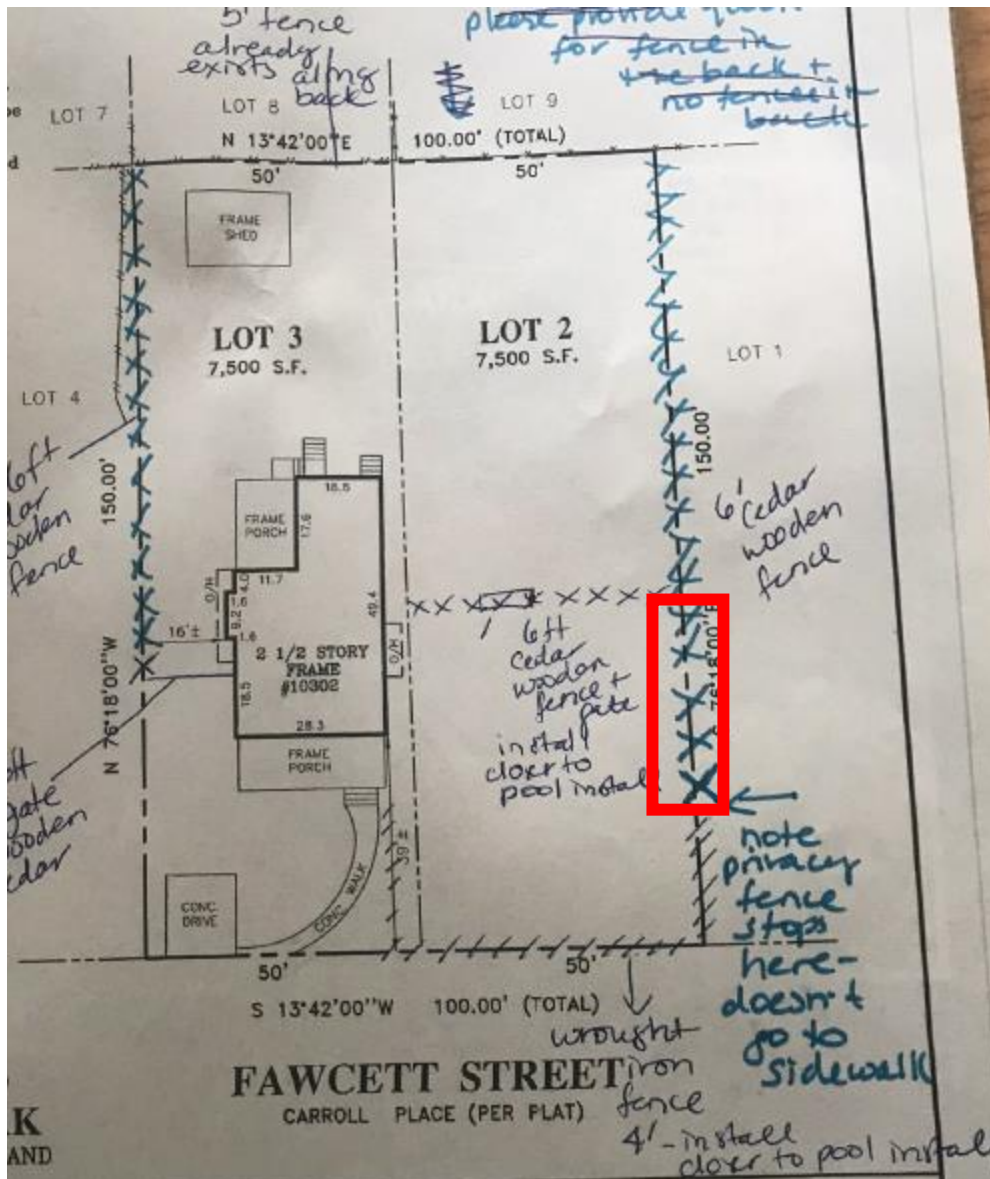 5' fence
already
exists along
back
please provide
for fence in
the back +
no fence in
back
LOT 7
LOT 8
LOT 9
N 13°42'00"E
100.00' (TOTAL)
50'
50'
FRAME
SHED
LOT 3
7,500 S.F.
LOT 2
7,500 S.F.
LOT 1
LOT 4
6ft
fence
150.00'
150.00'
6' Cedar
wooden
fence
18.5
17.6
FRAME
PORCH
11.7
4.0
1.6
9.2
1.6
O/H
O/H
49.4
16'±
2 1/2 STORY
FRAME
#10302
18.5
28.3
FRAME
PORCH
N 76°18'00"W
76°18'00"E
6ft
Cedar
wooden
fence +
gate
install
closer to
pool install
gate
39'±
CONC.
DRIVE
CONC. WALK
note
privacy
fence
stops
here-
doesn't
go to
sidewalk
50'
50'
S 13°42'00"W
100.00' (TOTAL)
wrought
iron
fence
4'-install
closer to pool install
FAWCETT STREET
CARROLL PLACE (PER PLAT)
K
AND